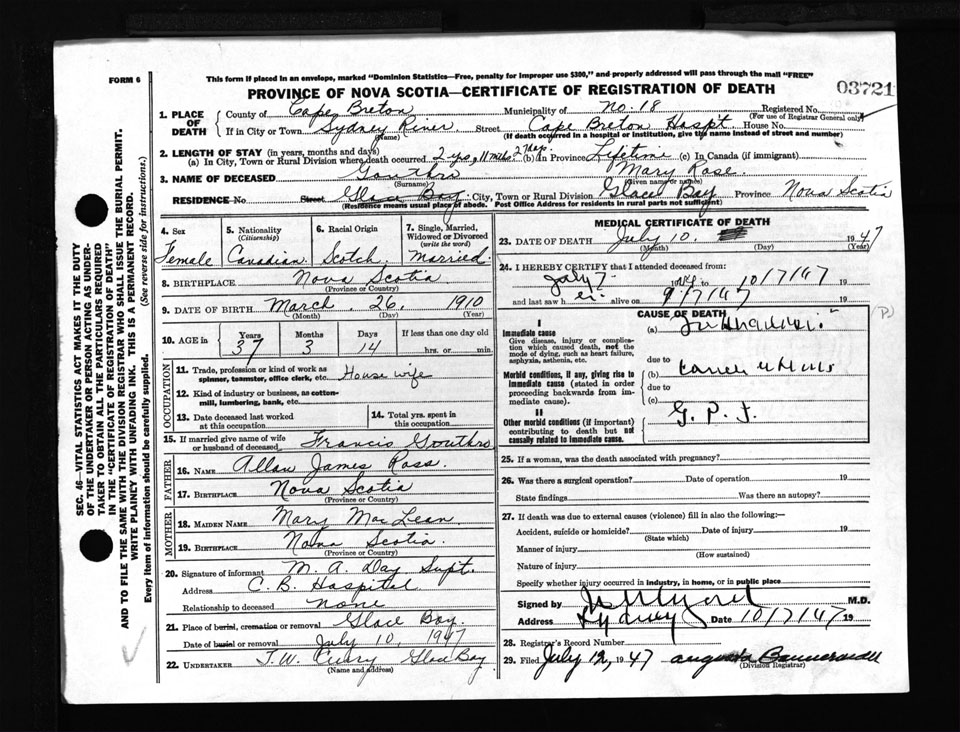 FORM 6
This form if placed in an envelope, marked "Dominion Statistics—Free, penalty for improper use $300," and properly addressed will pass through the mail "FREE"
PROVINCE OF NOVA SCOTIA—CERTIFICATE OF REGISTRATION OF DEATH
03721
1. PLACE OF DEATH
County of Cape Breton Municipality of No. 18 Registered No.
(For use of Registrar General only)
If in City or Town Sydney River Street Cape Breton Hosp't House No.
(Name) (If death occurred in a hospital or institution, give the name instead of street and number)
2. LENGTH OF STAY (in years, months and days)
(a) In City, Town or Rural Division where death occurred 2 yrs, 11 mths. 27 days. (b) in Province Lifetime (c) In Canada (if immigrant)
3. NAME OF DECEASED Gouthro Mary Rose
(Surname) (Given name or names)
RESIDENCE No Street Glace Bay City, Town or Rural Division Glace Bay Province Nova Scotia
(Residence means usual place of abode. Post Office Address for residents in rural parts not sufficient)
4. Sex Female
5. Nationality (Citizenship) Canadian
6. Racial Origin Scotch
7. Single, Married, Widowed or Divorced (write the word) Married
8. BIRTHPLACE Nova Scotia
(Province or Country)
9. DATE OF BIRTH March 26, 1910
(Month) (Day) (Year)
10. AGE in Years Months Days If less than one day old
37 3 14 hrs. or min.
OCCUPATION
11. Trade, profession or kind of work as spinner, teamster, office clerk, etc. House wife
12. Kind of industry or business, as cotton-mill, lumbering, bank, etc.
13. Date deceased last worked at this occupation
14. Total yrs. spent in this occupation
15. If married give name of wife or husband of deceased Francis Gouthro
FATHER
16. NAME Allan James Ross
17. BIRTHPLACE Nova Scotia
(Province or Country)
MOTHER
18. MAIDEN NAME Mary MacLean
19. BIRTHPLACE Nova Scotia.
(Province or Country)
20. Signature of informant M. A. Day Supt.
Address C. B. Hospital
Relationship to deceased none
21. Place of burial, cremation or removal Glace Bay.
Date of burial or removal July 10, 1947
22. UNDERTAKER T. W. Curry Glace Bay
(Name and address)
MEDICAL CERTIFICATE OF DEATH
23. DATE OF DEATH July 10. 1947
(Month) (Day) (Year)
24. I HEREBY CERTIFY that I attended deceased from:
July 7 19 to 10/7/47 19
and last saw h er alive on 9/7/47 19
CAUSE OF DEATH
I
Immediate cause
Give disease, injury or complication which caused death, not the mode of dying, such as heart failure, asphyxia, asthenia, etc.
(a)
due to
Morbid conditions, if any, giving rise to immediate cause (stated in order proceeding backwards from immediate cause).
(b)
due to
(c)
II
Other morbid conditions (if important) contributing to death but not causally related to immediate cause.
G. P. I.
25. If a woman, was the death associated with pregnancy?
26. Was there a surgical operation? Date of operation 19
State findings Was there an autopsy?
27. If death was due to external causes (violence) fill in also the following:—
Accident, suicide or homicide? Date of injury 19
(State which)
Manner of injury
(How sustained)
Nature of injury
Specify whether injury occurred in industry, in home, or in public place
Signed by M.D.
Address Sydney Date 10/7/47 19
28. Registrar's Record Number
29. Filed July 12, 1947
(Division Registrar)
SEC. 46—VITAL STATISTICS ACT MAKES IT THE DUTY
OF THE UNDERTAKER OR PERSON ACTING AS UNDERTAKER TO OBTAIN ALL THE PARTICULARS REQUIRED
IN THE "CERTIFICATE OF REGISTRATION OF DEATH"
AND TO FILE THE SAME WITH THE DIVISION REGISTRAR WHO SHALL ISSUE THE BURIAL PERMIT.
WRITE PLAINLY WITH UNFADING INK. THIS IS A PERMANENT RECORD.
Every item of information should be carefully supplied. (See reverse side for instructions.)